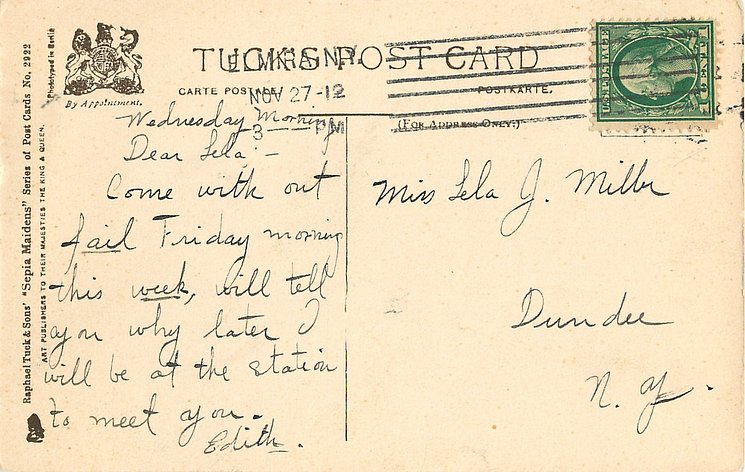 TUCK'S POST CARD
CARTE POSTALE. POSTKARTE.
(FOR ADDRESS ONLY.)
ELMIRA, N.Y.
NOV 27-12
3 — PM
By Appointment.
Phototyped in Berlin
Raphael Tuck & Sons' "Sepia Maidens" Series of Post Cards No. 2922
ART PUBLISHERS TO THEIR MAJESTIES THE KING & QUEEN.
Wednesday Morning
Dear Lela, –
Come with out
fail Friday morning
this week, will tell
you why later I
will be at the station
to meet you.
Edith.
Miss Lela J. Miller
Dundee
N. Y.